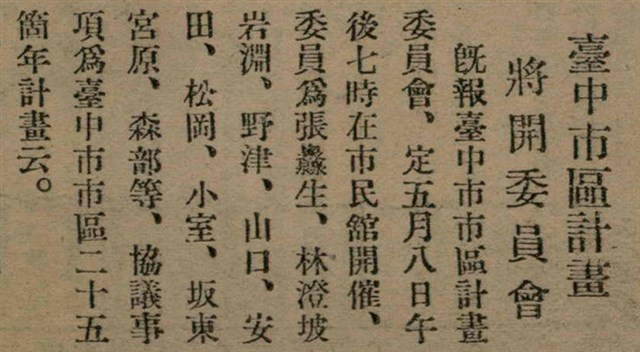 臺中市區計畫
將開委員會
既報臺中市市區計畫
委員會、定五月八日午
後七時在市民館開催、
委員爲張蠡生、林澄坡
岩淵、野津、山口、安
田、松岡、小室、坂東
宮原、森部等、協議事
項爲臺中市市區二十五
箇年計畫云。